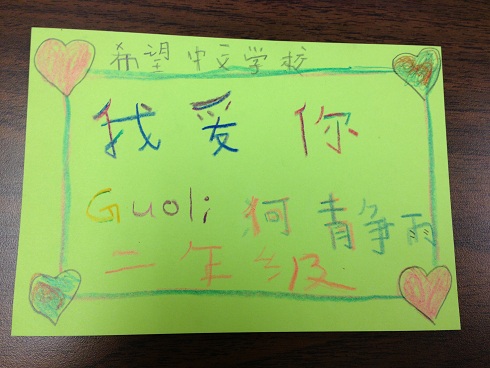 希望中文学校
我爱你
Guoli 狗 青争雨
二年级